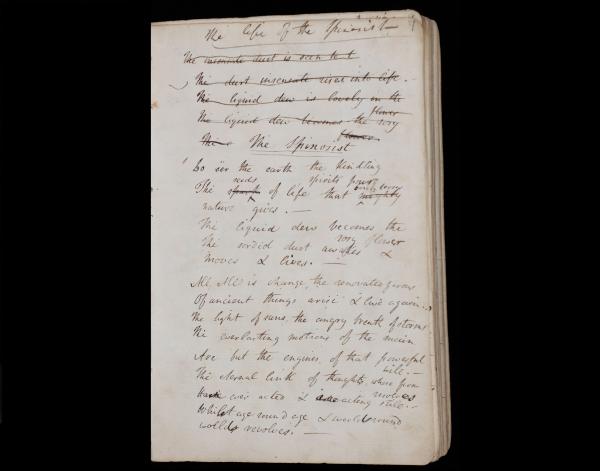 The life of the Spinosist —
The insensate dust is seen to t
The dust insensate rise into life.
The liquid dew is lovely in the
flower
The liquid dew becomes the rosy
flower
The Spinosist
Lo o'er the earth the kindling
spirits pour
The seeds spark of life that mighty
nature gives. —
The liquid dew becomes the
rosy flower
The sordid dust awakes &
moves & lives. —
All, All is change, the renovated forms
Of ancient things arise & live again.
The light of suns, the angry breath of storms
The everlasting motions of the main
Are but the engines of that powerful
will. —
The eternal link of thoughts, where form
resolves
Have ever acted & are acting still. —
Whilst age round age & world round
world revolves. —